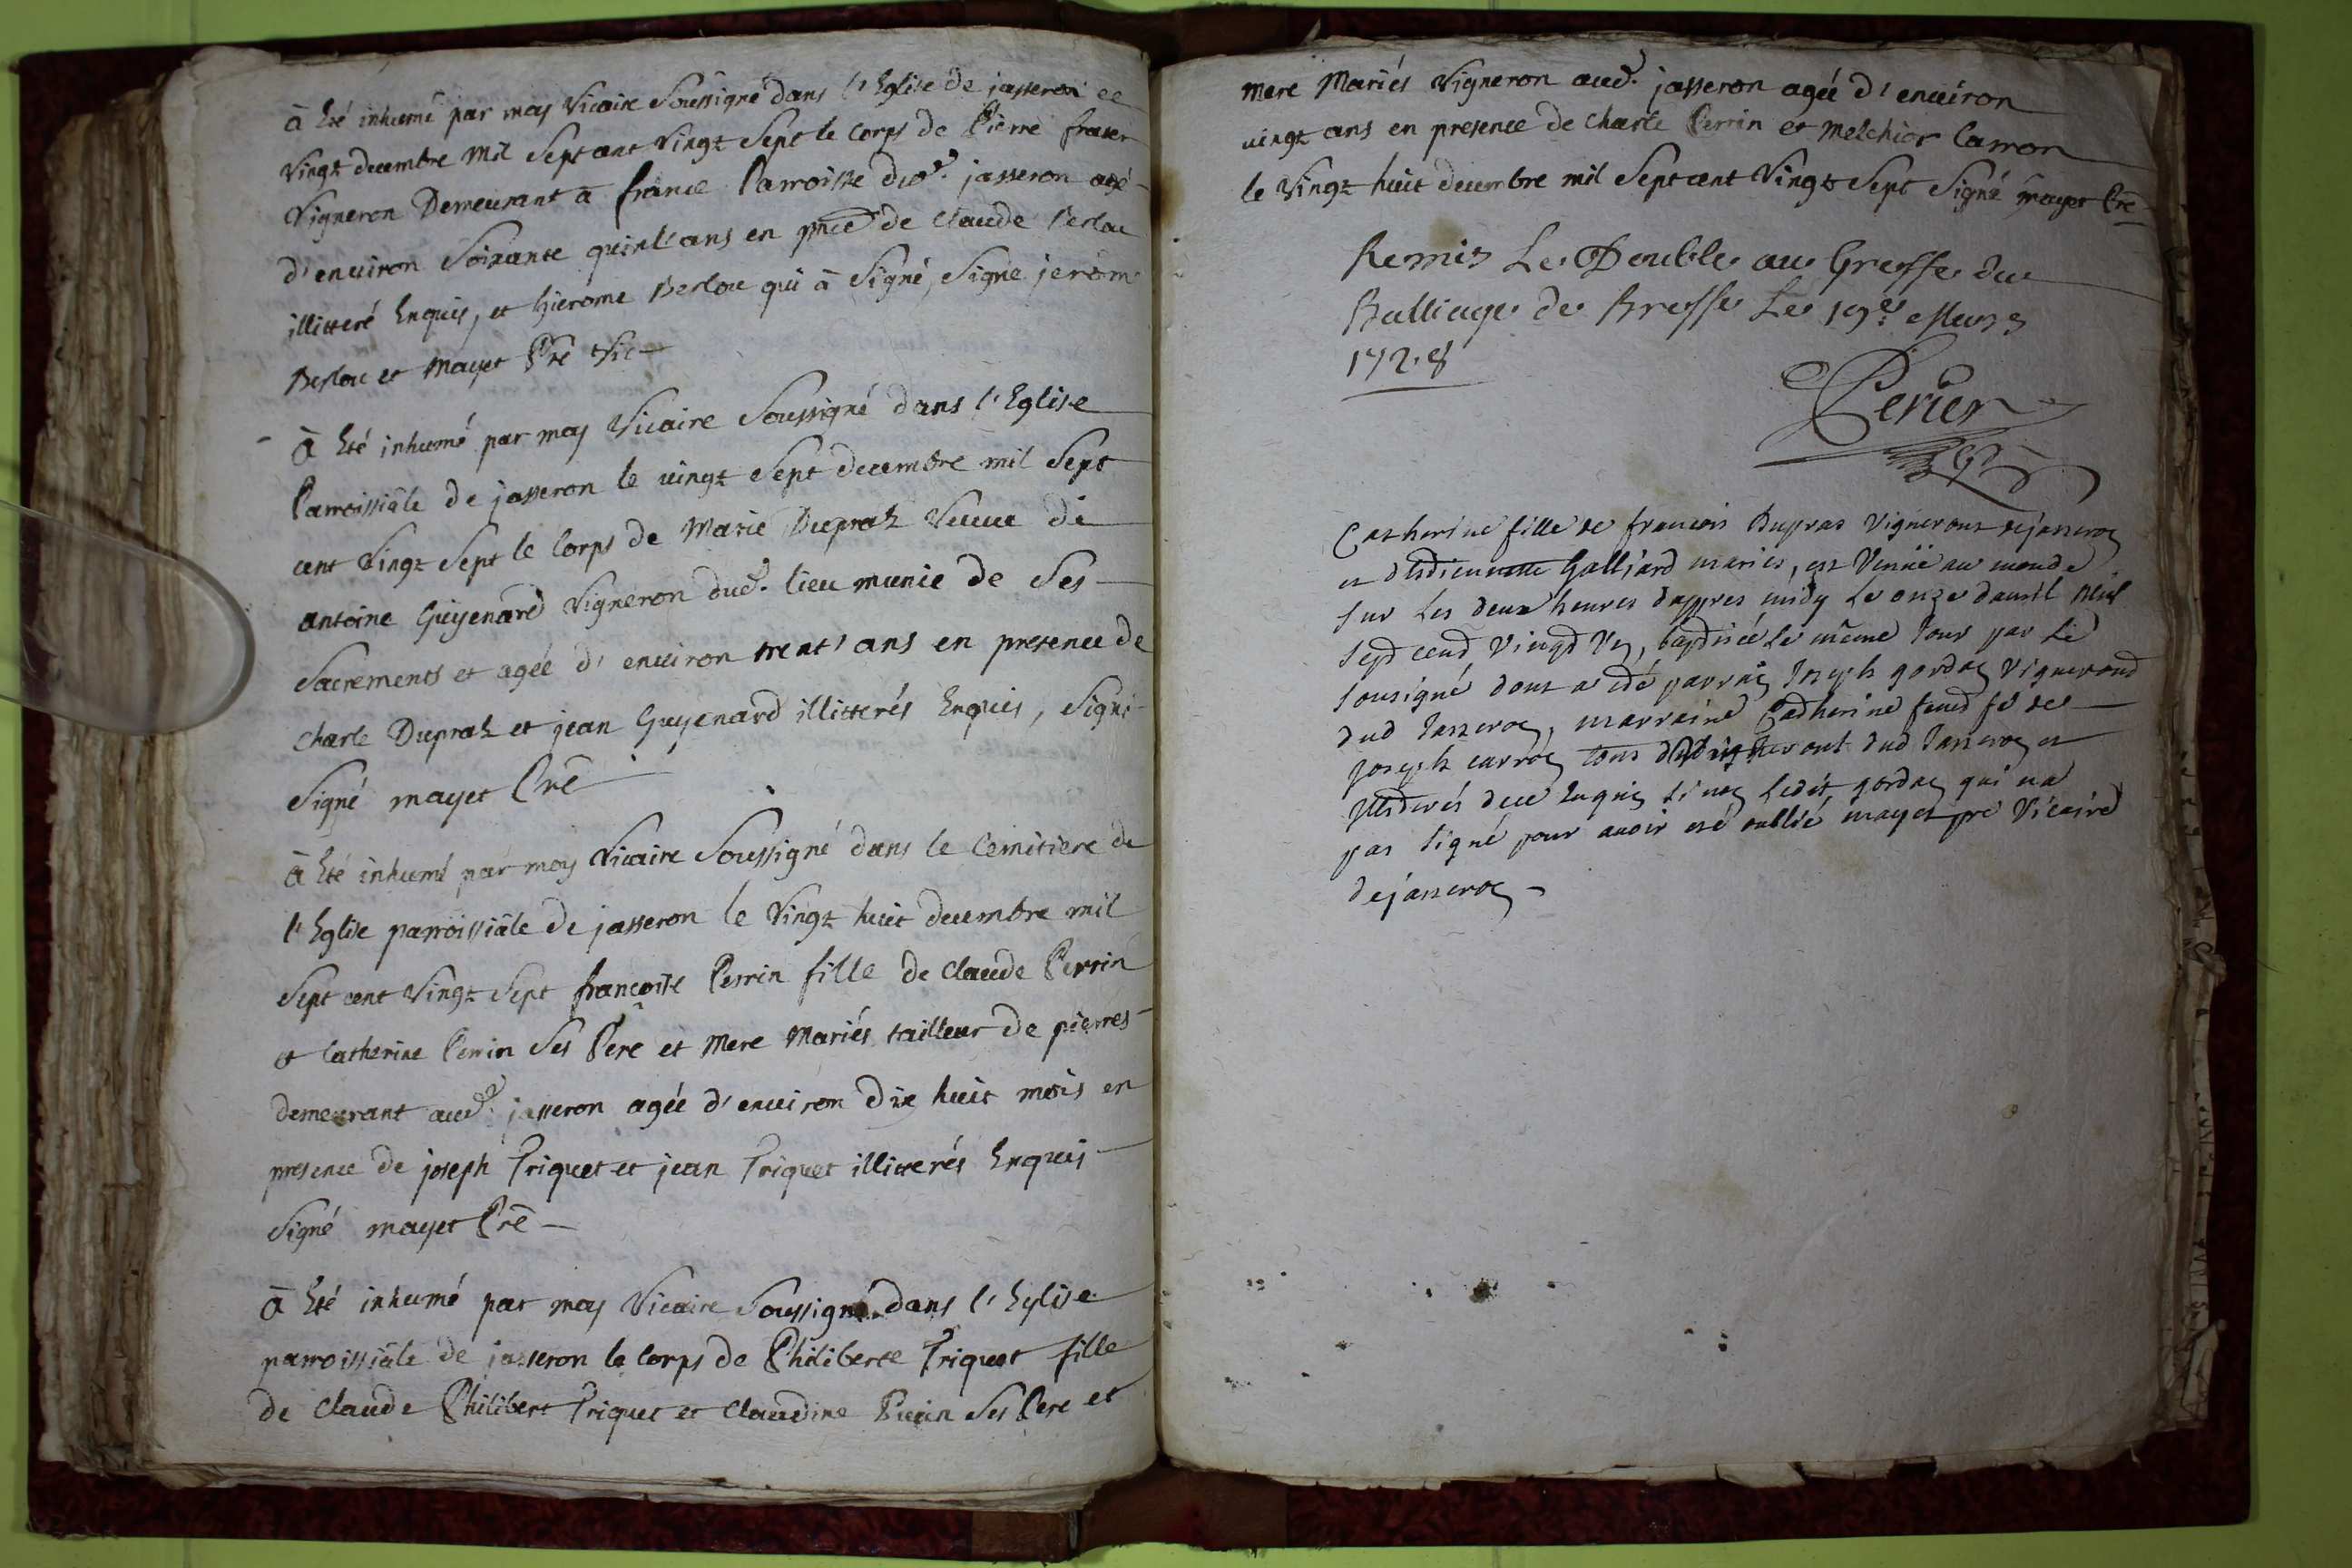 à Eté inhumé par moy Vicaire Soussigné dans l'Eglise de jasseron ce
Vingt decembre Mil Sept cent Vingt Sept le Corps de Pierre
Vigneron Demeurant à france Parroisse dud. jasseron agé
d'enuiron Soixante quint'ans en pnce de Claude
illitteré Enquis, et hierome Berlou qui à Signé, Signe jerom
Berlou et Mayet Prê Vic
à Eté inhumé par moy Vicaire Soussigné dans l'Eglise
Parroissiâle de jasseron le uingt Sept decembre mil Sept
cent Vingt Sept le Corps de Marie Dupraz Veuue de
antoine Guyenard Vigneron dud. lieu munie de Ses
Sacrements et agée d'enuiron trent'ans en presence de
Charle Dupraz et jean Guyenard illitterés Enquis, Signé
Signé mayet Prê
à Eté inhumé par moy Vicaire Soussigné dans le Cemitiere de
l'Eglise parroissiâle de jasseron le Vingt huit decembre mil
Sept cent Vingt Sept francoise Perrin fille de Claude Perrin
et Catherine Perrin Ses Pere et Mere Mariés tailleur de pierres
demeurant aud. jasseron agée d'enuiron dix huit mois en
presence de joseph Triquet et jean Triquet illitterés Enquis
Signé mayet Prê
à Eté inhumé par moy Vicaire Soussigné dans l'Eglise
parroissiâle de jasseron le Corps de Philiberte Triquet fille
de Claude Philibert Triquet et Claudine Ses Pere et
mere Mariés Vigneron aud. jasseron agée d'enuiron
uingt ans en presence de Charle Perrin et Melchior Carron
le Vingt huit decembre mil Sept cent Vingt Sept Signé mayet Prê
Remis Le Double au Greffe du
Balliage de Bresse Le 19e Mars
1728
Perier
Catherine fille de francois Dupras Vigneront dejasseron
et Galliard mariés, est Venuë au monde
sur les deux heures d'appres midy le onze dauril Mil
sept cend Vingt Vn, baptisée le même Jour par le
sousigné dont a eté parrain Joseph gordan Vignerond
dud Jasseron, marraine Catherine de
joseph carron tous dud Jasseron et
Illiterés de ce Enquis sinon ledit gordan qui na
pas signé pour auoir esté oublié mayet prê Vicaire
dejasseron